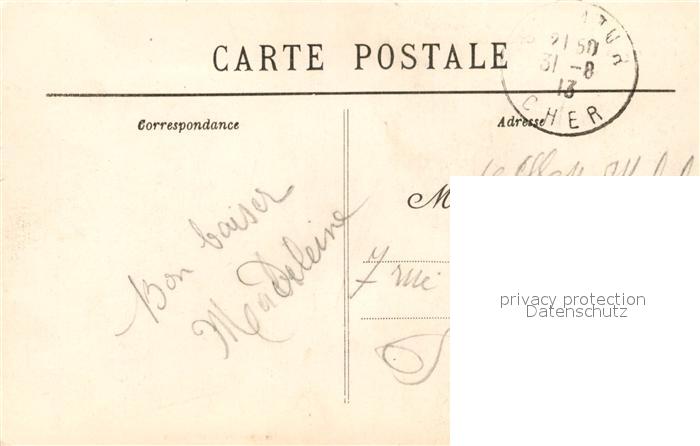 CARTE POSTALE
21 50
31 -8
13
CHER
Correspondance
Adresse
Bon baiser
Madeleine
M
7 rue
privacy protection
Datenschutz